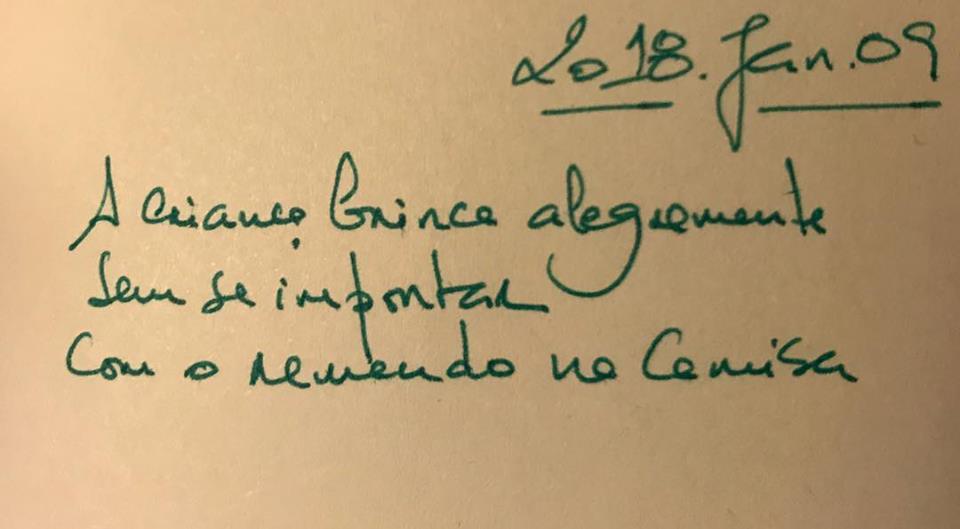 2018.Jan.09
A criança brinca alegremente
sem se importar
com o remendo na camisa